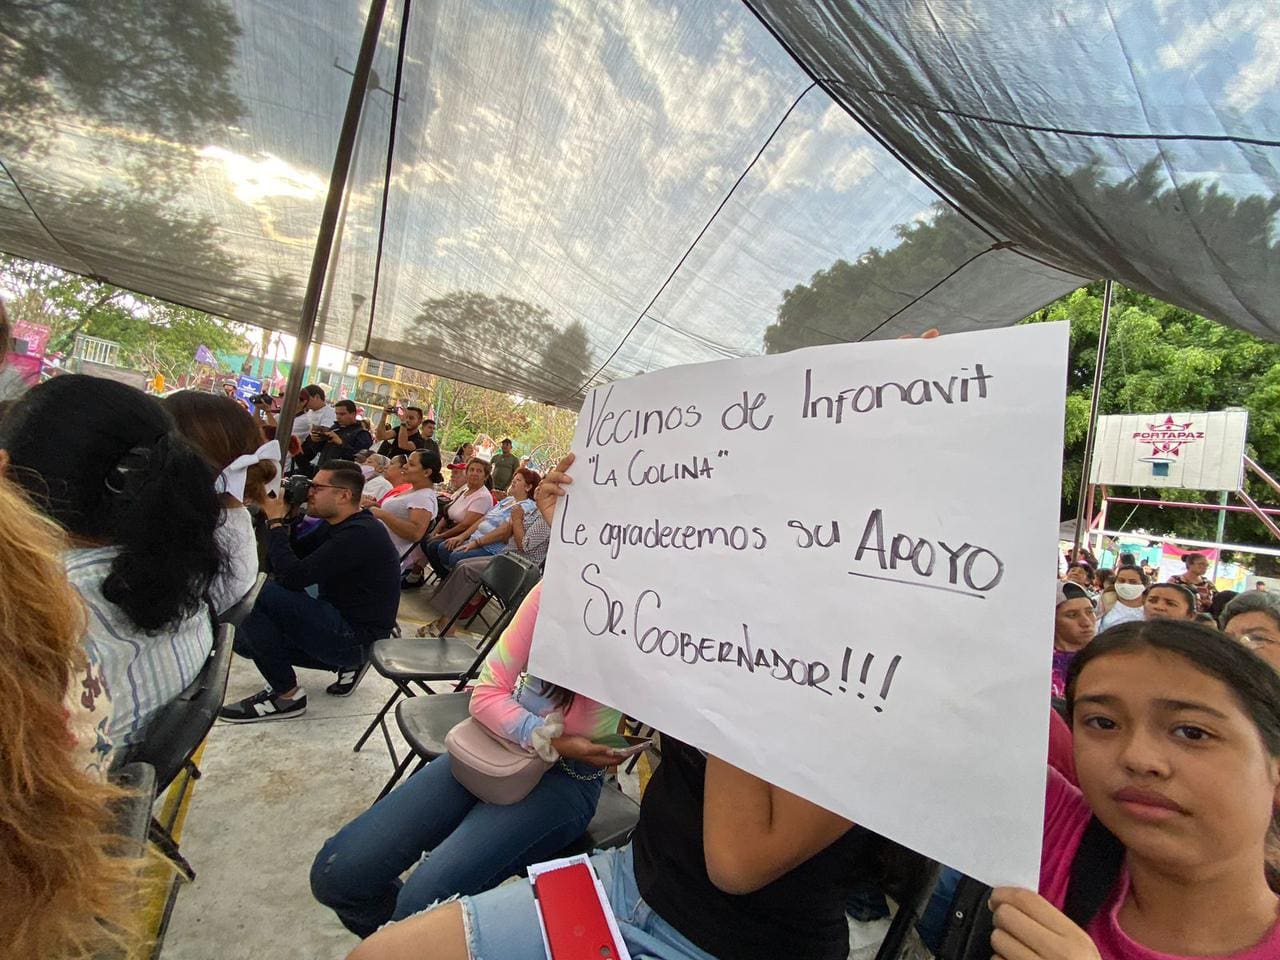 Vecinos de Infonavit
"La Colina"
Le agradecemos su APOYO
Sr. Gobernador!!!
FORTAPAZ